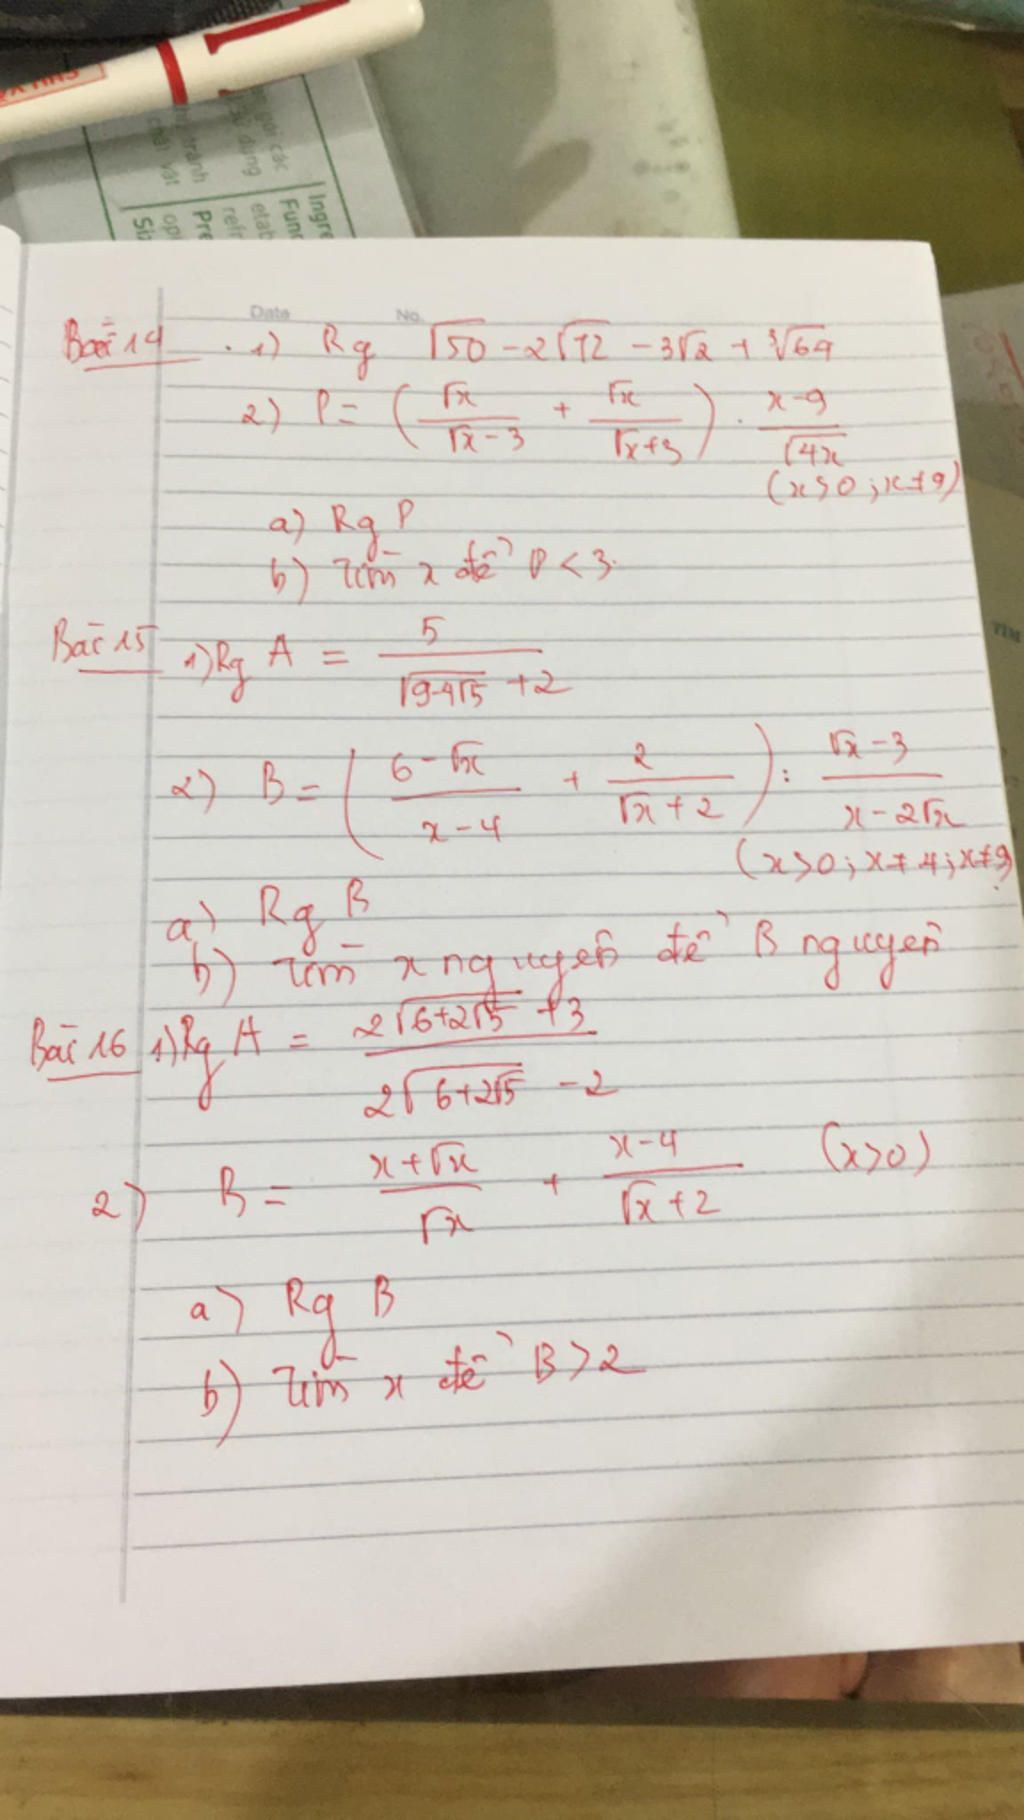 Ingre
Func
Pre
Siz
Date No.
Bài 14 . 1) Rg √50 - 2√72 - 3√2 + ³√64
2) P = (√x/(√x - 3) + √x/(√x+3)) . (x-9)/√4x
(x>0; x≠9)
a) Rg P
b) Tìm x để P < 3.
Bài 15 1) Rg A = 5/(√(9-4√5) + 2)
2) B = ((6-√x)/(x-4) + 2/(√x + 2)) : (√x - 3)/(x - 2√x)
(x>0; x≠4; x≠9)
a) Rg B
b) Tìm x nguyên để B nguyên
Bài 16 1) Rg A = (2√(6+2√5) + 3)/(2√(6+2√5) - 2)
2) B = (x+√x)/√x + (x-4)/(√x + 2) (x>0)
a) Rg B
b) Tìm x để B > 2